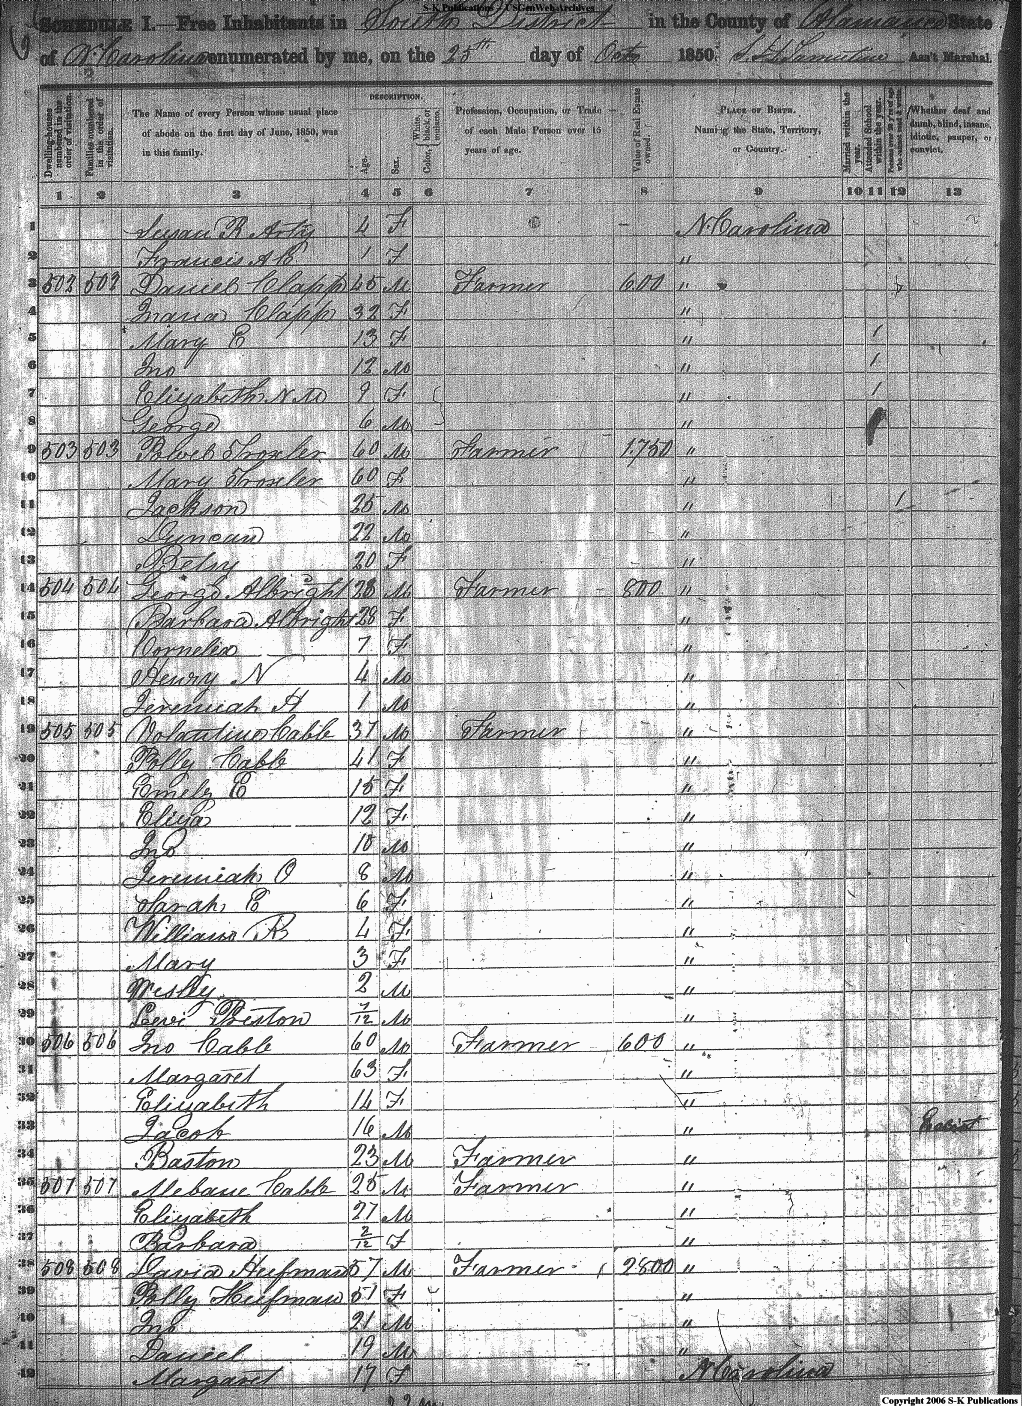 S-K Publications - USGenWebArchives
SCHEDULE I.—Free Inhabitants in South District in the County of Alamance State
of N. Carolina enumerated by me, on the 25th day of Octo 1850. Ass't Marshal.
Dwelling-houses numbered in the order of visitation. Families numbered in the order of visitation. The Name of every Person whose usual place of abode on the first day of June, 1850, was in this family. DESCRIPTION. Age. Sex. Color, White, black, or mulatto. Profession, Occupation, or Trade of each Male Person over 15 years of age. Value of Real Estate owned. PLACE OF BIRTH. Naming the State, Territory, or Country. Married within the year. Attended School within the year. Persons over 20 y'rs of age who cannot read & write. Whether deaf and dumb, blind, insane, idiotic, pauper, or convict.
1 2 3 4 5 6 7 8 9 10 11 12 13
1 Susan R 4 F N. Carolina
2 Francis A E 1 F "
3 502 502 Daniel Clapp 45 M Farmer 600 "
4 Clapp 32 F "
5 Mary E 13 F " 1
6 Jno 12 M " 1
7 Elizabeth N M 9 F " 1
8 George 6 M "
9 503 503 Troxler 60 M Farmer 1,750 "
10 Mary Troxler 60 F "
11 Jackson 25 M " 1
12 Duncan 22 M "
13 Betsy 20 F "
14 504 504 George Albright 28 M Farmer 800 "
15 Barbara Albright 28 F "
16 Cornelia 7 F "
17 Henry N 4 M "
18 Jeremiah H 1 M "
19 505 505 Volentine Cabble 37 M Farmer "
20 Polly Cabble 41 F "
21 Emely E 15 F "
22 Eliza 12 F "
23 Jno 10 M "
24 Jeremiah O 8 M "
25 Sarah E 6 F "
26 William R 4 F "
27 Mary 3 F "
28 Wesley 2 M "
29 Levi Preston 7/12 M "
30 506 506 Jno Cabble 60 M Farmer 600 "
31 Margaret 63 F "
32 Elizabeth 14 F "
33 Jacob 16 M "
34 Baston 23 M Farmer "
35 507 507 Mebane Cabble 25 M Farmer "
36 Elizabeth 27 M "
37 Barbara 2/12 F "
38 508 508 David Hufman 57 M Farmer 2800 "
39 Polly Hufman 51 F "
40 Jno 21 M "
41 Daniel 19 M "
42 Margaret 17 F N Carolina
Copyright 2006 S-K Publications